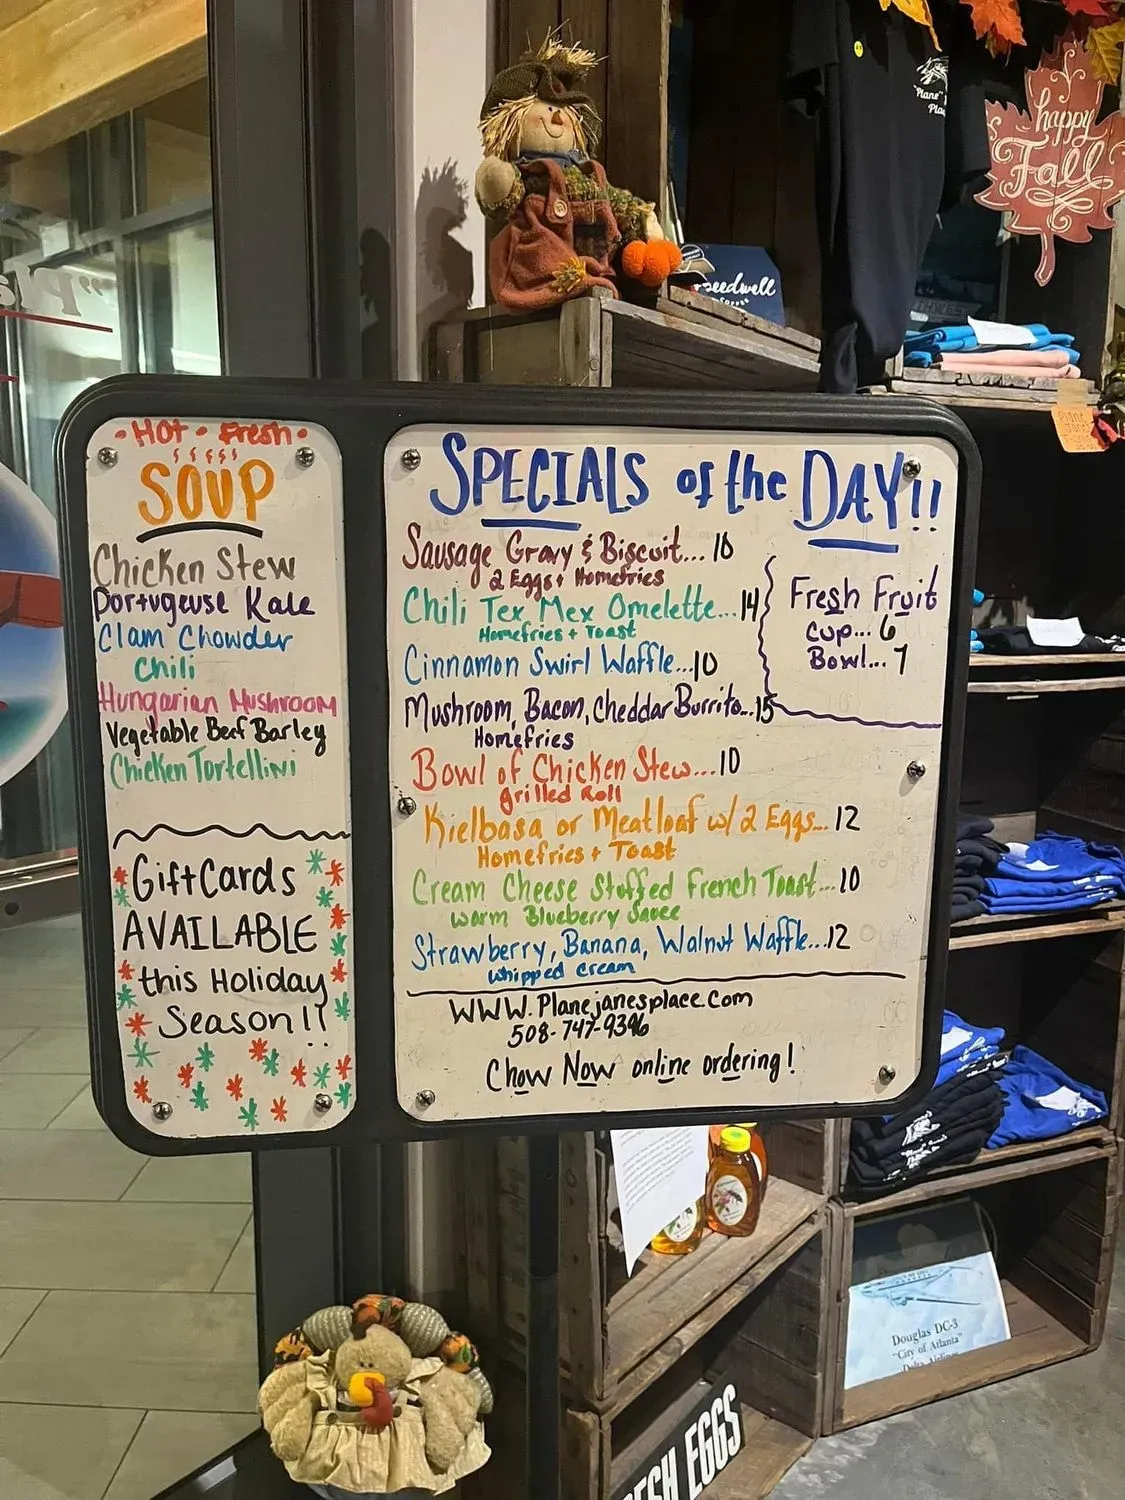 happy
Fall
"Plane"
Speedwell
COFFEE
• Hot • Fresh •
SOUP
Chicken Stew
Portugeuse Kale
Clam Chowder
Chili
Hungarian Mushroom
Vegetable Beef Barley
Chicken Tortellini
Gift Cards
AVAILABLE
this Holiday
Season!!
SPECIALS of the DAY!!
Sausage Gravy & Biscuit... 10
2 Eggs + Homefries
Chili Tex Mex Omelette...14
Homefries + Toast
Cinnamon Swirl Waffle...10
Mushroom, Bacon, Cheddar Burrito...15
Homefries
Bowl of Chicken Stew...10
grilled Roll
Kielbasa or Meatloaf w/ 2 Eggs... 12
Homefries + Toast
Cream Cheese Stuffed French Toast...10
warm Blueberry Sauce
Strawberry, Banana, Walnut Waffle...12
whipped cream
Fresh Fruit
Cup... 6
Bowl... 7
WWW.Planejanesplace.com
508-747-9396
Chow Now online ordering!
Douglas DC-3
"City of Atlanta"
Delta Airlines
FRESH EGGS